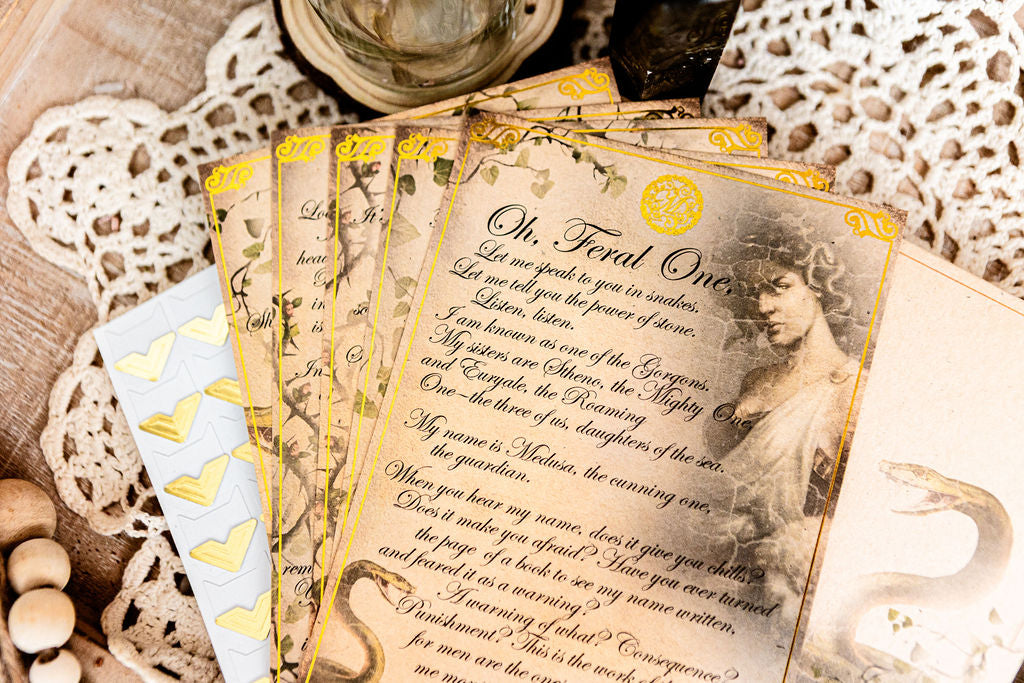 Oh, Feral One,
Let me speak to you in snakes.
Let me tell you the power of stone.
Listen, listen.
I am known as one of the Gorgons.
My sisters are Stheno, the Mighty One,
and Euryale, the Roaming
One—the three of us, daughters of the sea.
My name is Medusa, the cunning one,
the guardian.
When you hear my name, does it give you chills?
Does it make you afraid? Have you ever turned
the page of a book to see my name written,
and feared it as a warning?
A warning of what? Consequence?
Punishment? This is the work of
for men are the